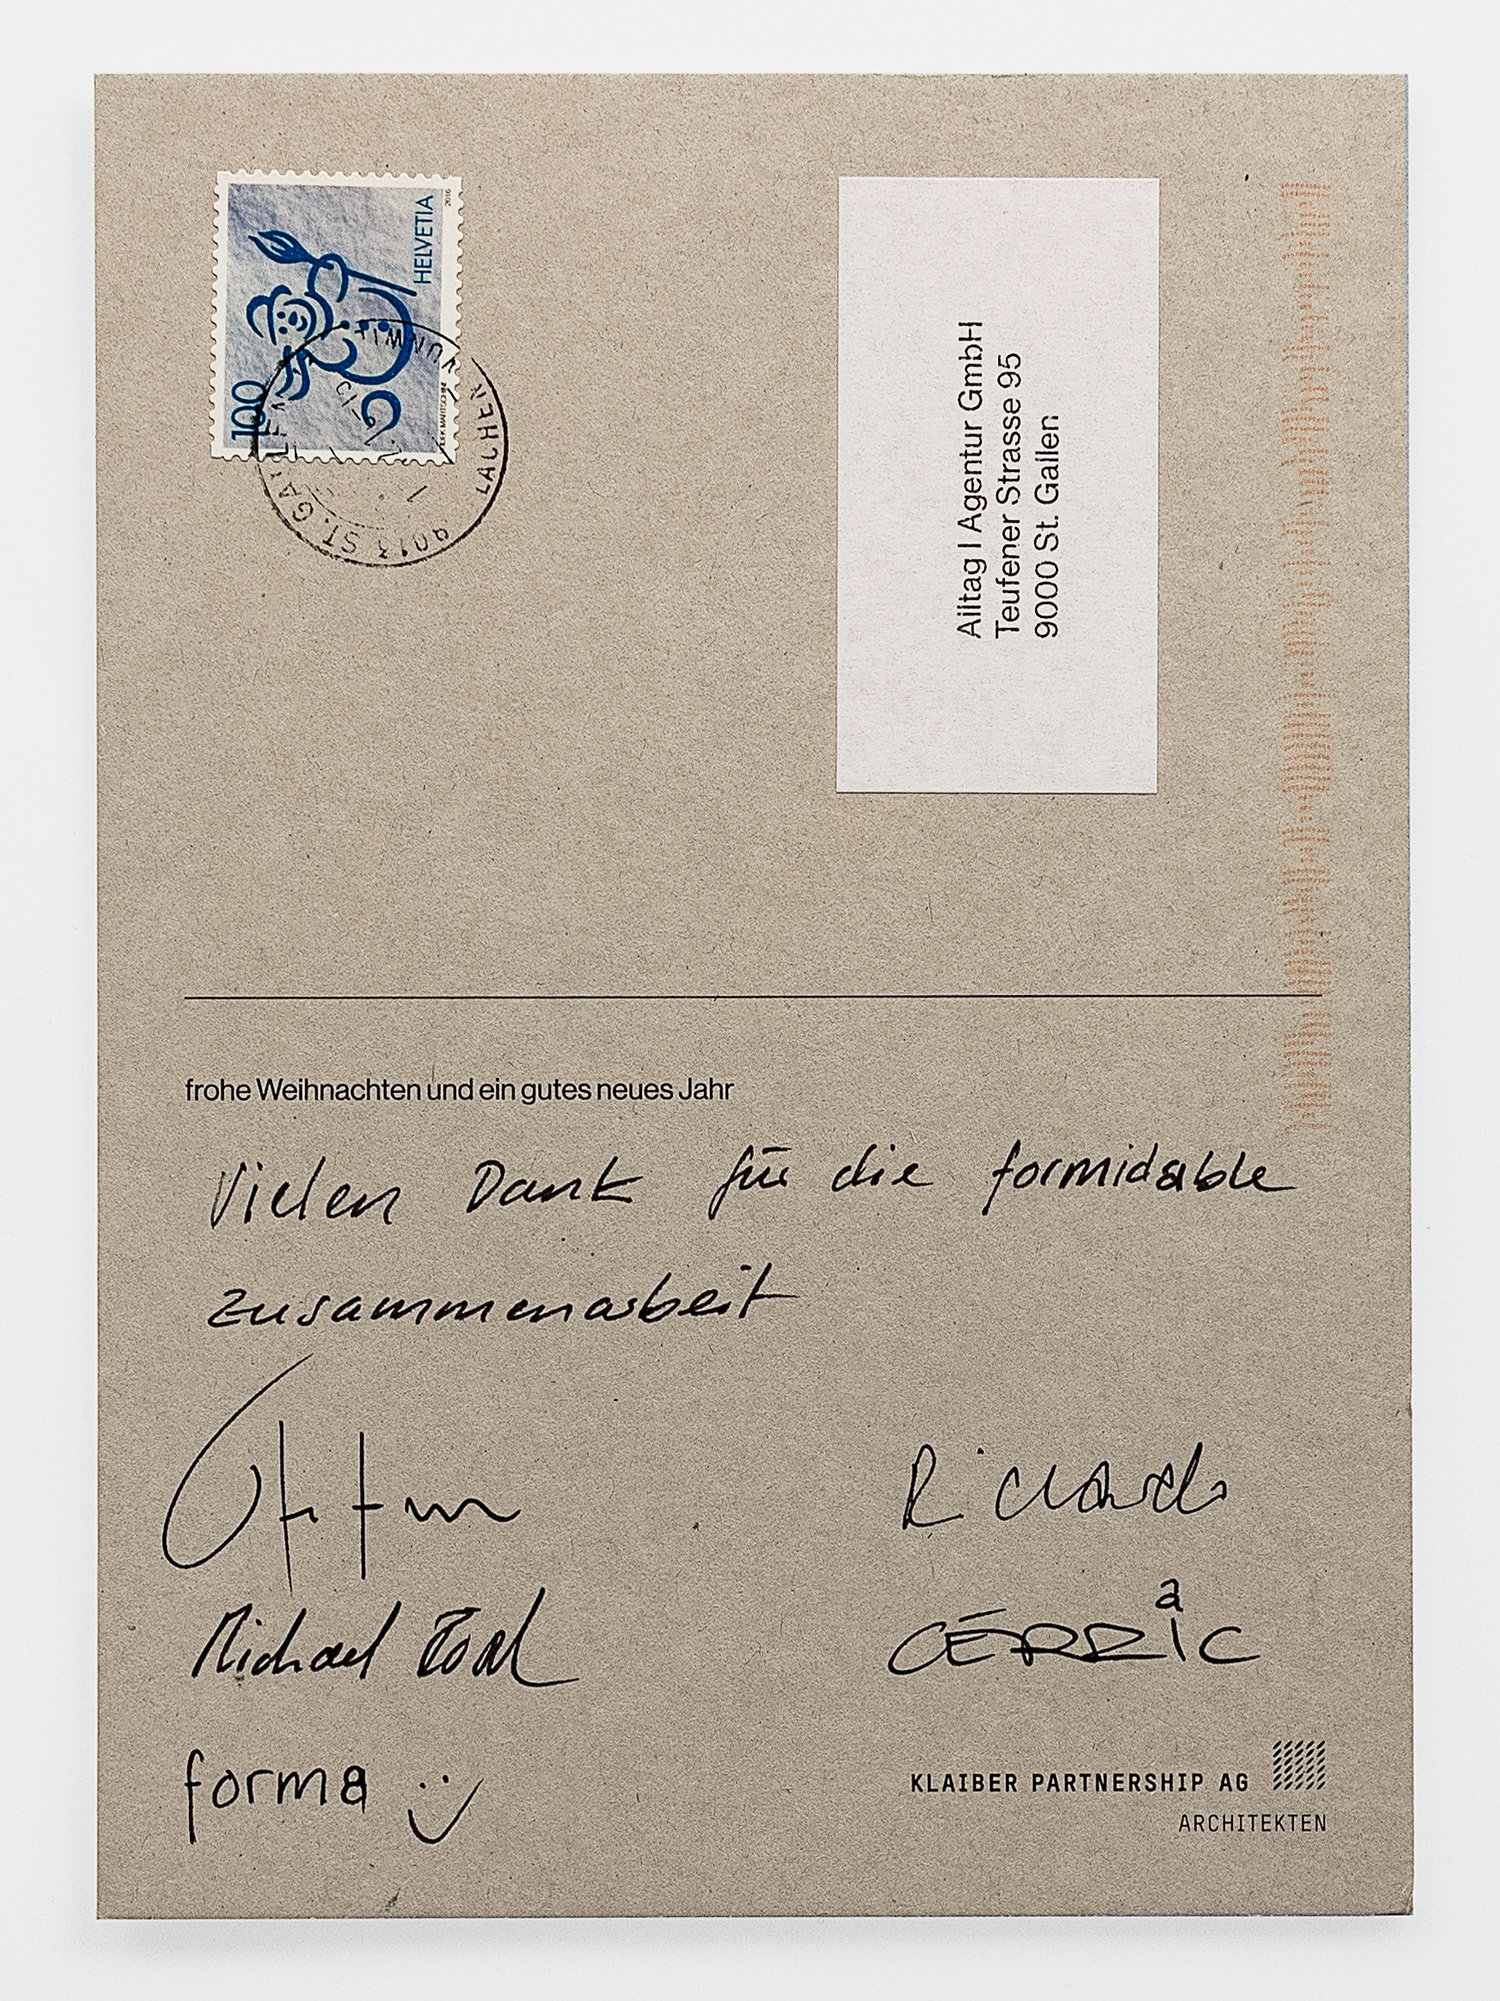 HELVETIA
2016
100
9013 ST. GALLEN
LACHEN
Alltag | Agentur GmbH
Teufener Strasse 95
9000 St. Gallen
frohe Weihnachten und ein gutes neues Jahr
Vielen Dank für die formidable
zusammenarbeit
Michael
forma
KLAIBER PARTNERSHIP AG
ARCHITEKTEN